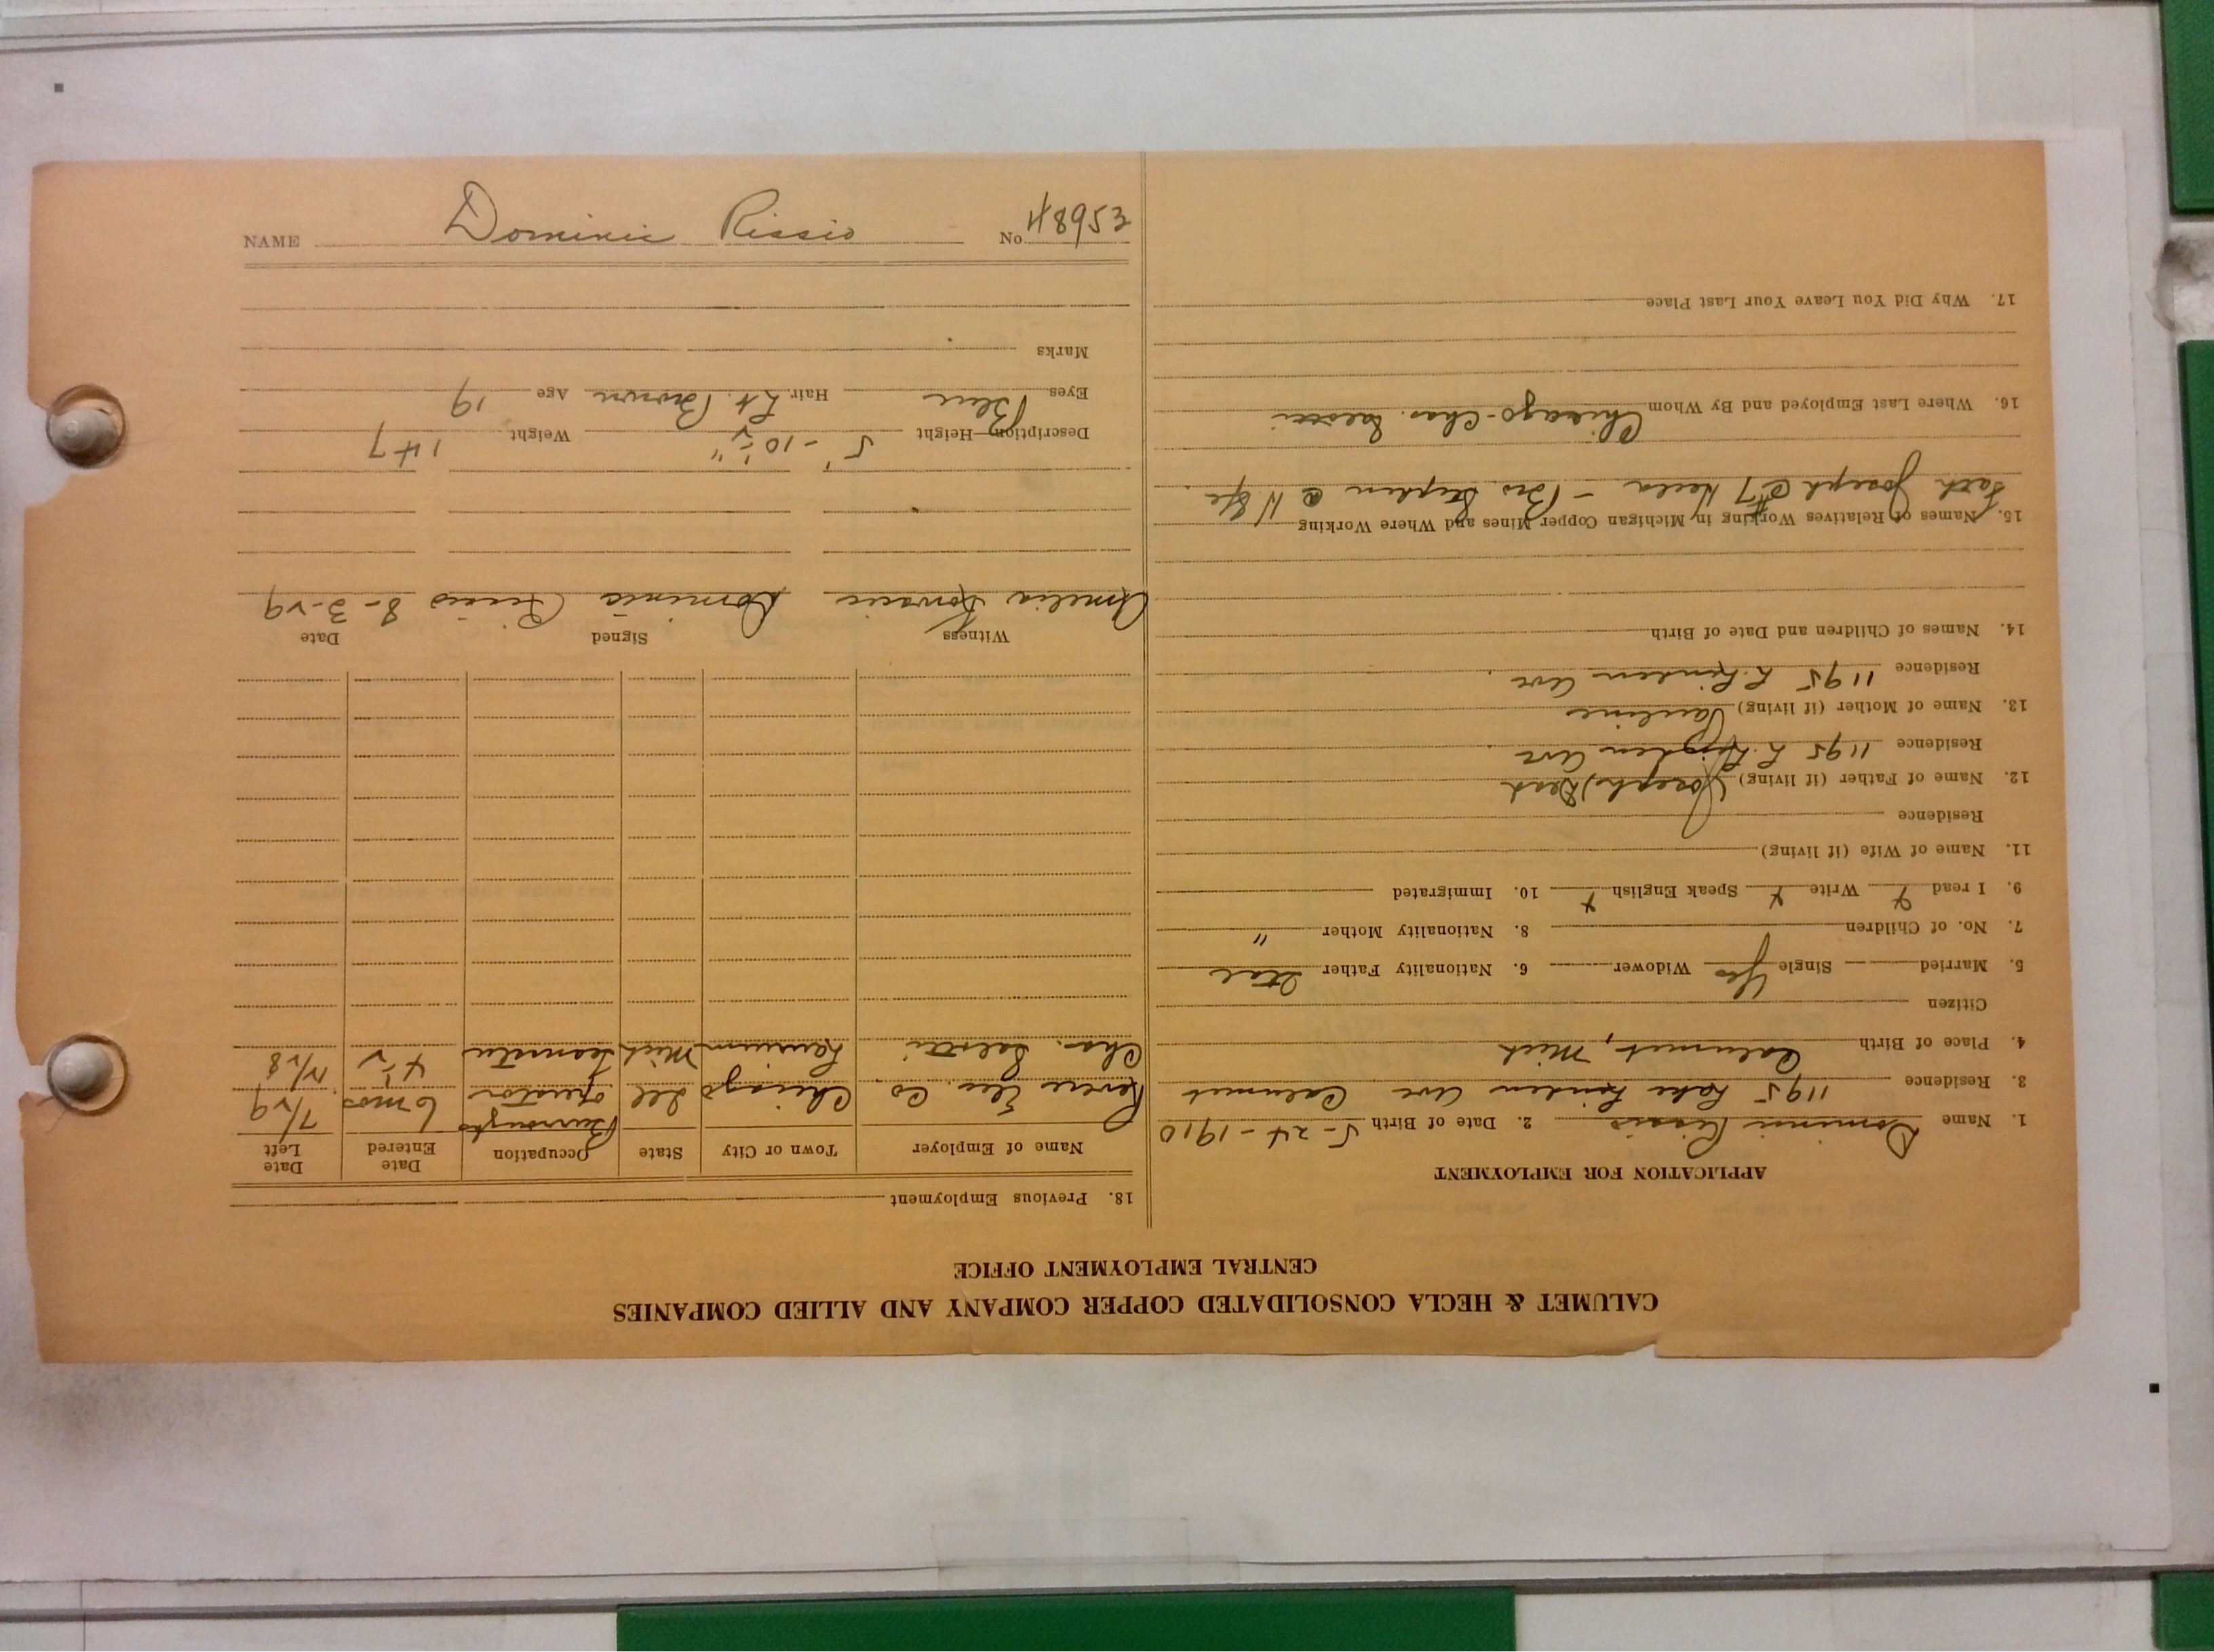 CALUMET & HECLA CONSOLIDATED COPPER COMPANY AND ALLIED COMPANIES
CENTRAL EMPLOYMENT OFFICE
APPLICATION FOR EMPLOYMENT
1. Name Dominic Rissio 2. Date of Birth 5-24-1910
3. Residence 1195 Lake Linden Ave Calumet
4. Place of Birth Calumet, Mich
Citizen
5. Married Single Yes Widower 6. Nationality Father Ital
7. No. of Children 8. Nationality Mother "
9. I read x Write x Speak English x 10. Immigrated
11. Name of Wife (if living)
Residence
12. Name of Father (if living) Joseph
Residence 1195 L. Linden Ave
13. Name of Mother (if living) Pauline
Residence 1195 L. Linden Ave
14. Names of Children and Date of Birth
15. Names of Relatives Working in Michigan Copper Mines and Where Working
Fath Joseph @ #7 Hecla - Bro. Stephen @
16. Where Last Employed and By Whom Chicago - Chas.
17. Why Did You Leave Your Last Place
18. Previous Employment
Name of Employer Town or City State Occupation Date Entered Date Left
Revere Elec. Co Chicago Ill Burroughs operator 6 mos 7/29
Chas. Laurium Mich Teamster 4 1/2
Witness Signed Date
Amelia Dominic Rissio 8-3-29
Description—Height 5'-10 1/2" Weight 147
Eyes Blue Hair Lt. Brown Age 19
Marks
NAME Dominic Rissio No 48953